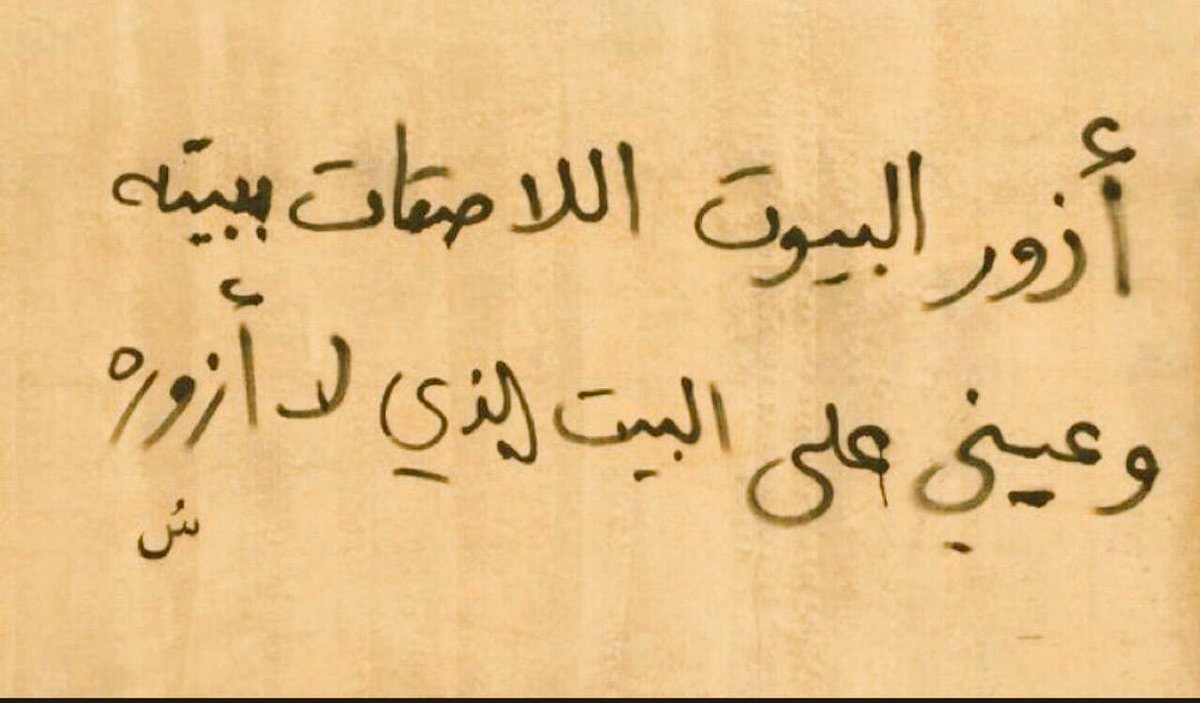 أزور البيوت اللاصقات ببيته
وعيني على البيت الذي لا أزوره
سُ